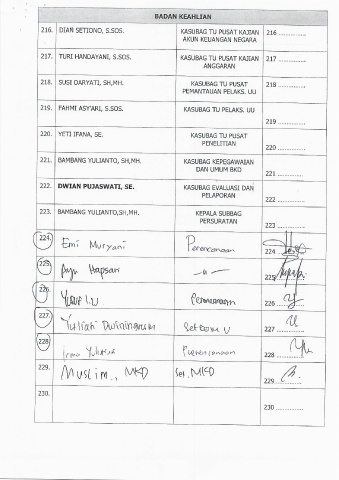 BADAN KEAHLIAN
216. DIAN SETIONO, S.SOS. KASUBAG TU PUSAT KAJIAN AKUN KEUANGAN NEGARA 216 ..............
217. TURI HANDAYANI, S.SOS. KASUBAG TU PUSAT KAJIAN ANGGARAN 217 ..............
218. SUSI DARYATI, SH,MH. KASUBAG TU PUSAT PEMANTAUAN PELAKS. UU 218 ..............
219. FAHMI ASY'ARI, S.SOS. KASUBAG TU PELAKS. UU 219 ..............
220. YETI IFANA, SE. KASUBAG TU PUSAT PENELITIAN 220 ..............
221. BAMBANG YULIANTO, SH,MH. KASUBAG KEPEGAWAIAN DAN UMUM BKD 221 ..............
222. DWIAN PUJASWATI, SE. KASUBAG EVALUASI DAN PELAPORAN 222 ..............
223. BAMBANG YULIANTO,SH,MH. KEPALA SUBBAG PERSURATAN 223 ..............
224. Emi Muryani Perencanaan 224
225. Ayu Hapsari -"- 225
226. Perencanaan 226
227. Yuliati Dwiningrum 227
228. Perencanaan 228
229. Muslim., MKD Set. MKD 229
230. 230 ..............